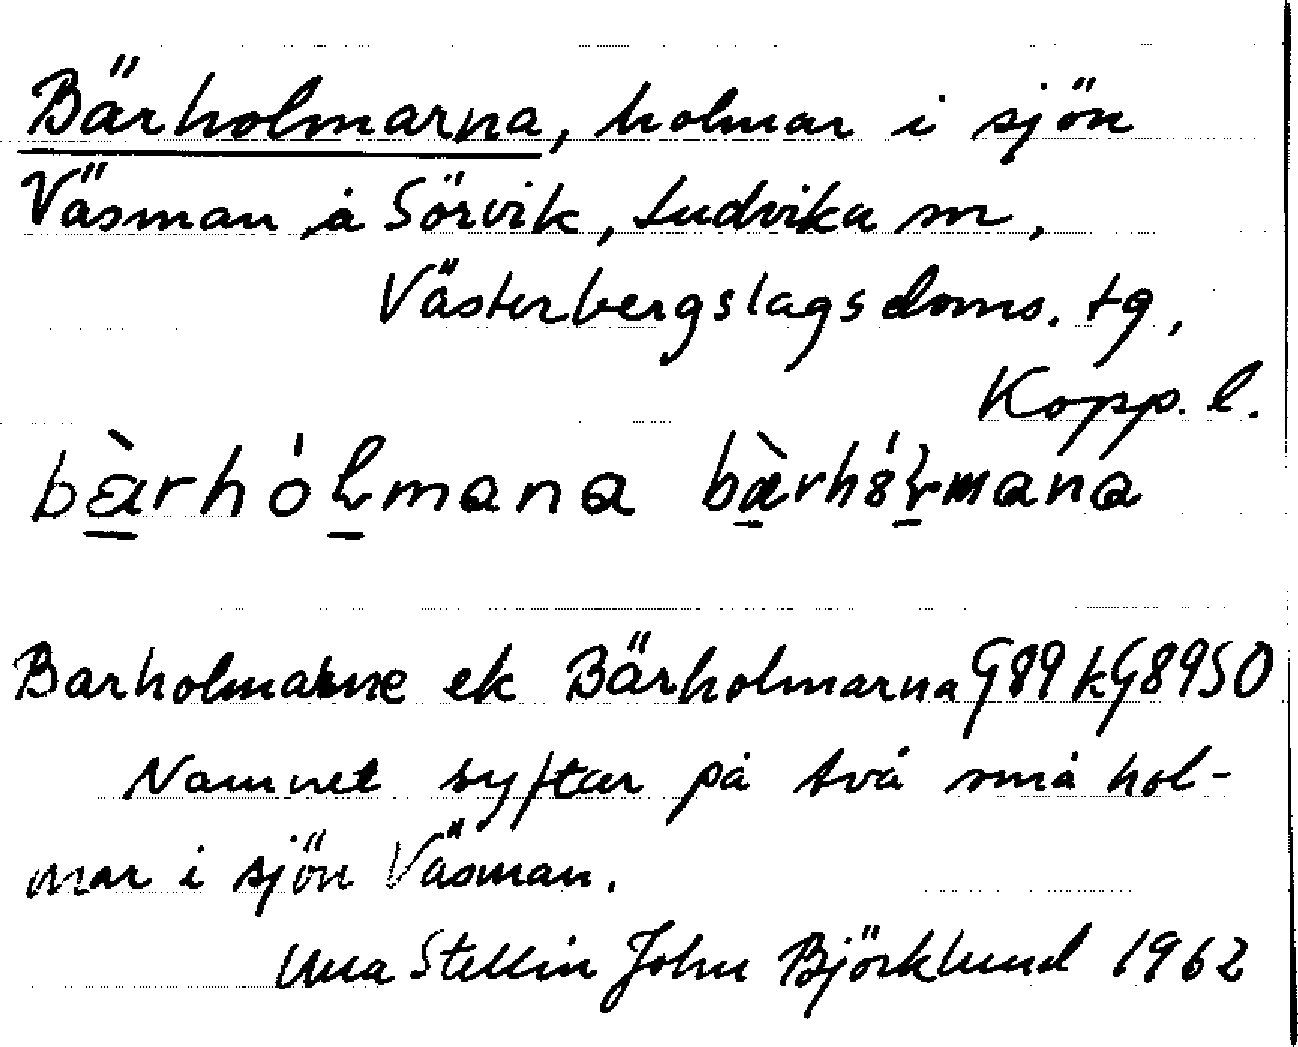 Bärholmarna, holmar i sjön
Väsman å Sörvik, Ludvika sn,
Västerbergslags doms. tg,
Kopp. l.
bàrhólmana bàrhólmana
Barholmarne ek Bärholmarna G89 kG8950
Namnet syftar på två små hol-
mar i sjön Väsman.
Una Stellin John Björklund 1962